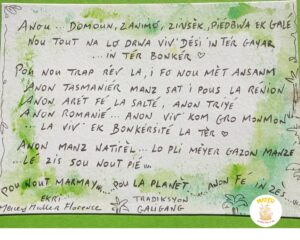 ANOU... DOMOUN, ZANIMO, ZINSEK, PIEDBWA EK GALE
NOU TOUT NA LO DRWA VIV' DÉSI IN TÈR GAYAR
... IN TÈR BONKER
POU NOU TRAP RÈV LA, I FO NOU MÈT ANSANM
ANON TASMANIÉR MANZ SAT I POUS LA RENION
ANON ARÈT FÉ LA SALTÉ, ANON TRIYE
ANON ROMANIÉ... ANON VIV' KOM GRO MONMON
LA VIV' EK BONKÈRSITÉ LA TÈR
ANON MANZ NATIREL... LO PLI MÉYER GAZON MANZE
LÉ ZIS SOU NOUT PIÉ...
POU NOUT MARMAY... POU LA PLANET... ANON FÉ IN ZES...
EKRI
Florence
TRADIKSYON
GALIGANG